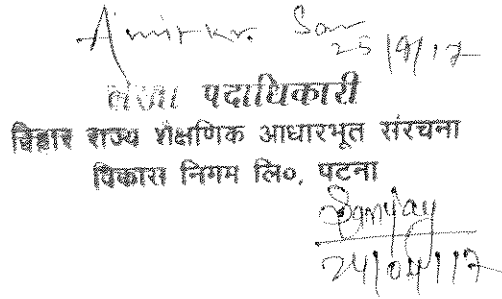 Amit Kr.
25/9/17
लेखा पदाधिकारी
बिहार राज्य शैक्षणिक आधारभूत संरचना
विकास निगम लि०, पटना
Sanjay
24/04/17